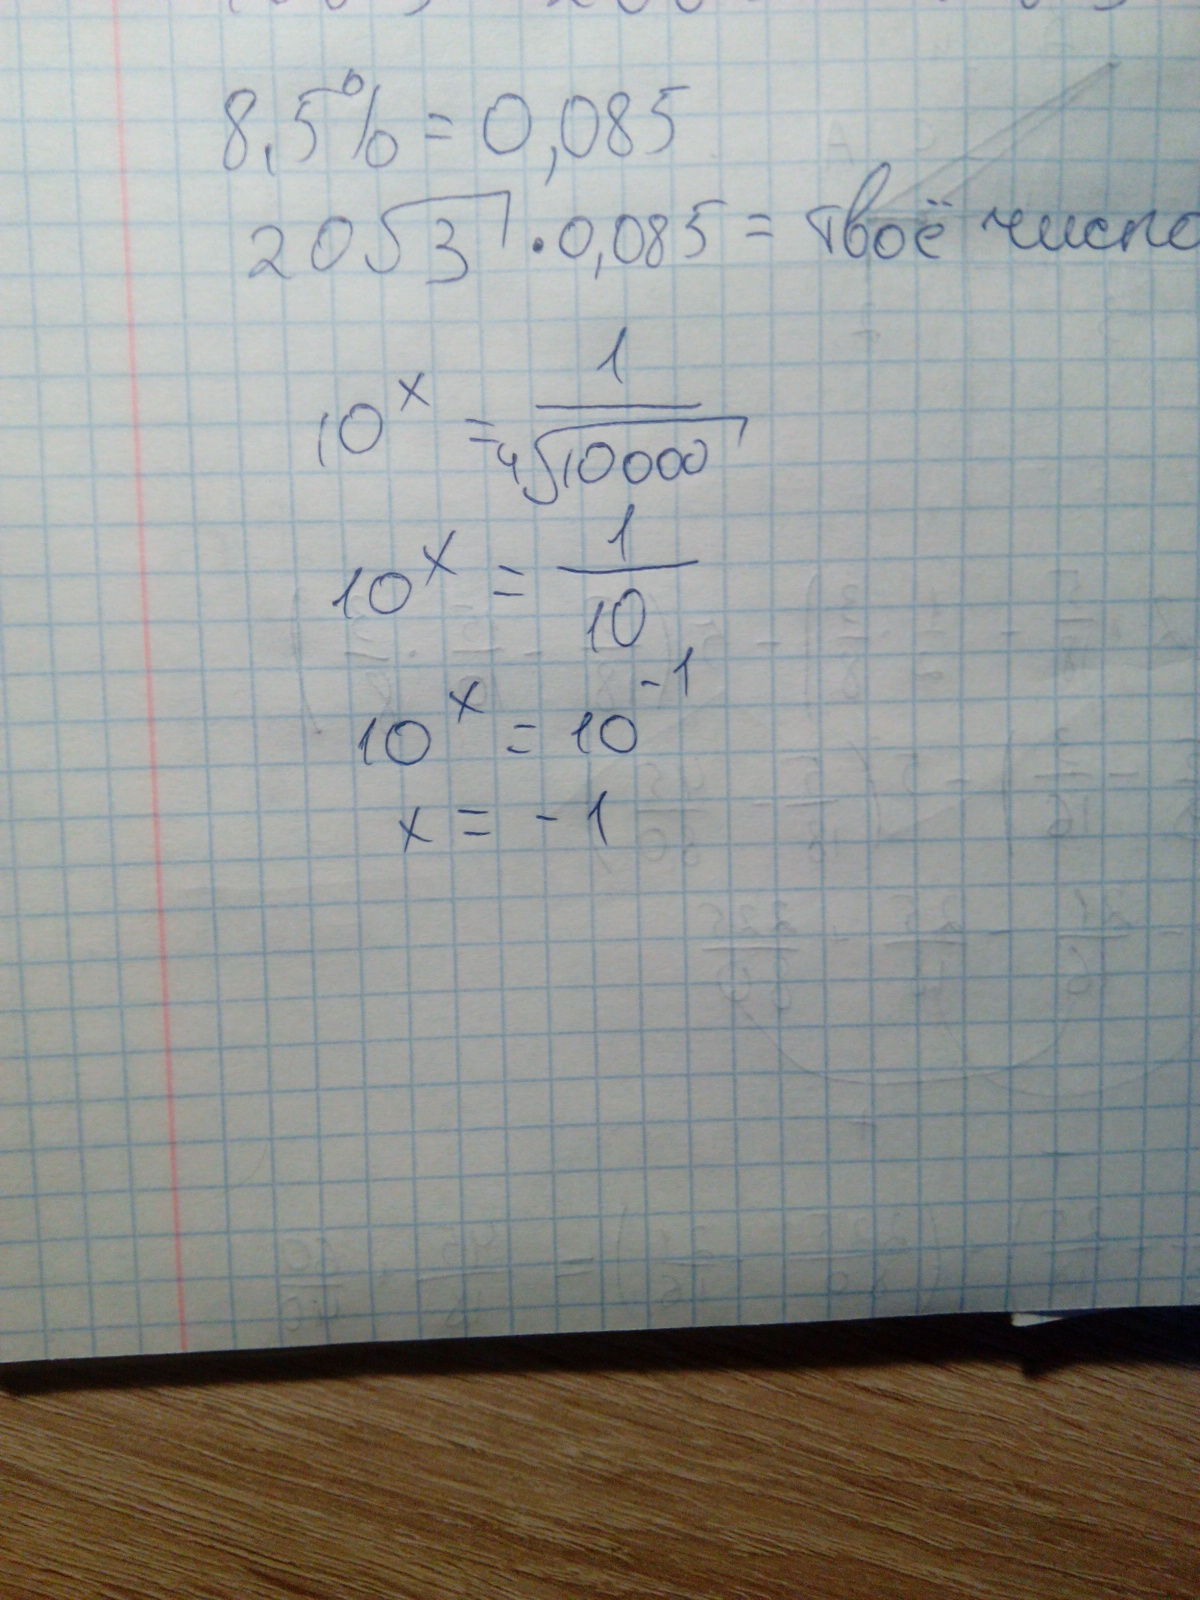 8,5% = 0,085
20√3 · 0,085 = твоё число
10^x = 1/⁴√10000
10^x = 1/10
10^x = 10^-1
x = -1